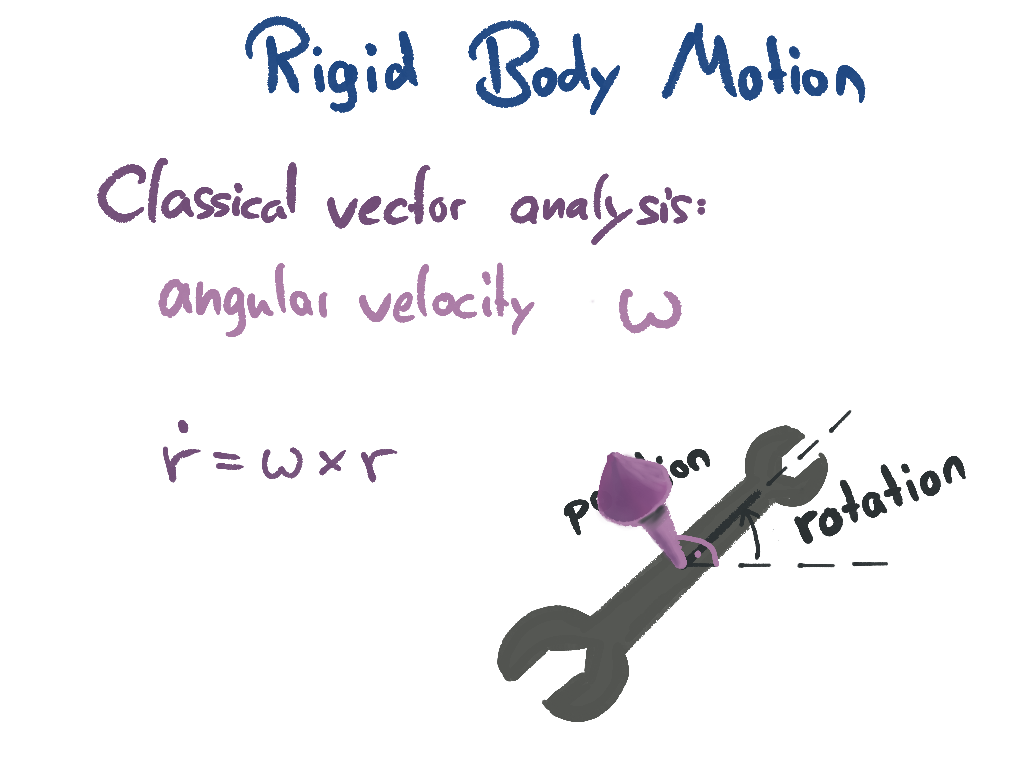 Rigid Body Motion
Classical vector analysis:
angular velocity ω
ṙ = ω × r
rotation